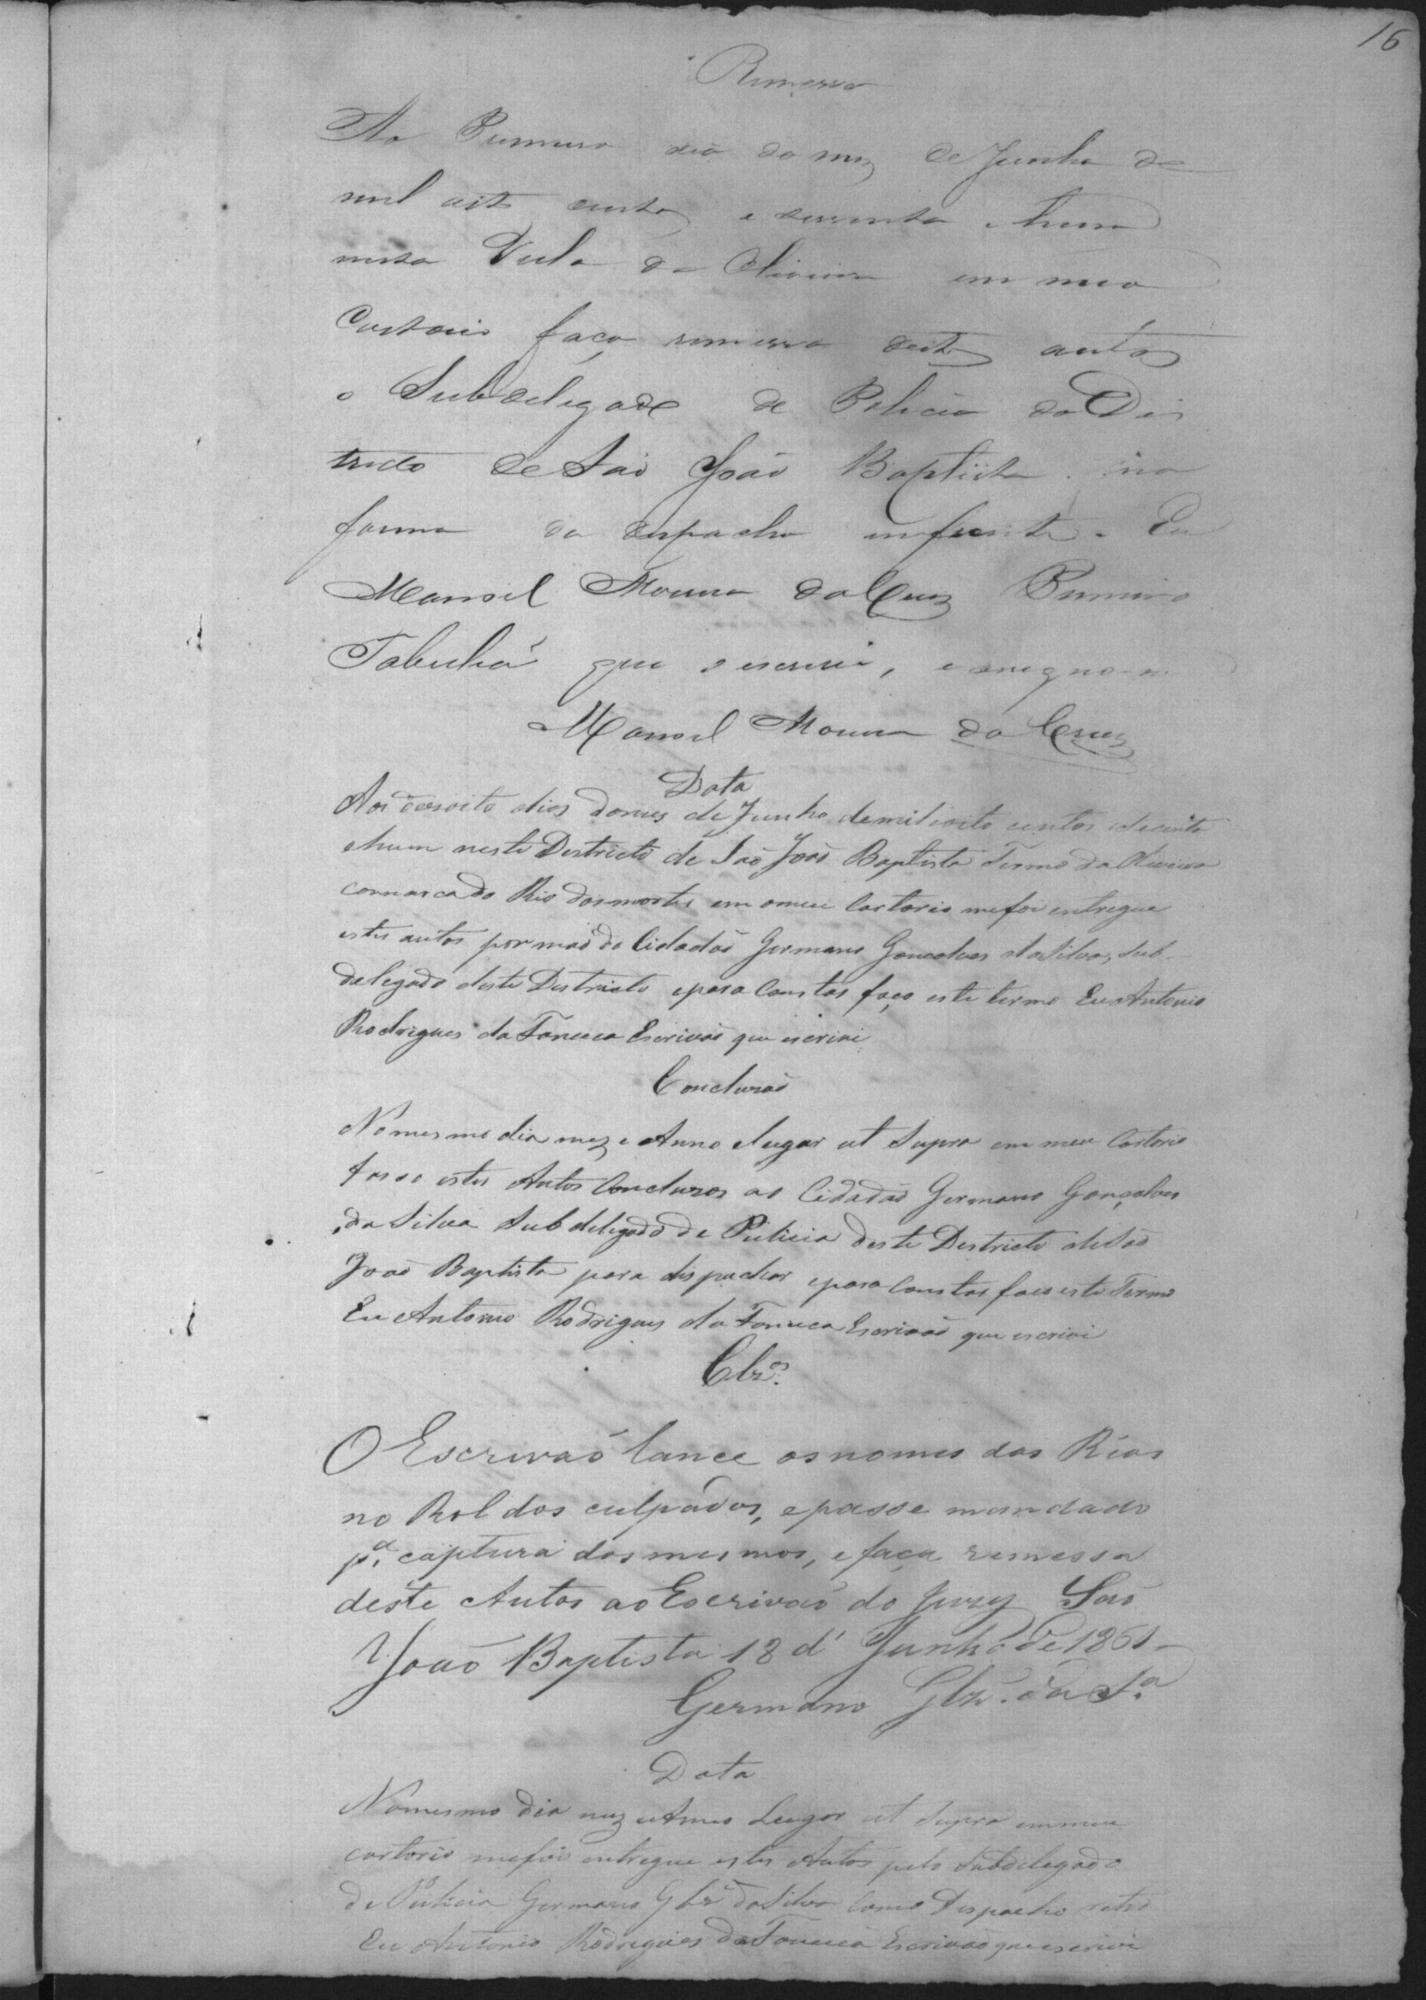 16
Remessa
Ao Primeiro dia do mez de Junho de
mil oito centos e secenta e hum
nesta Villa da Oliveira em meo
Cartorio faço remessa destes autos
o Subdelegado de Policia do Des
tricto de São João Baptista na
forma do despacho infrente. Eu
Manoel Moura da Cruz Primeiro
Tabeliaõ que o escrevi, e assigno
Manoel Moura da Cruz
Data
Aos desoito dias domes de Junho demil eoito centos secenta
ehum neste Destricto de Saõ Joaõ Baptista Termo da Oliveira
commarca do Rio dasmortes em omeu Cartorio mefoi entregue
estes autos pormaõ do Cidadaõ Germano Goncalves daSilva, Sub-
delegado deste Destricto epara Constar faço este termo EuAntonio
Rodrigues da Fonceca Escrivaõ que escrivi
Concluzaõ
Nomesmo dia mez e Anno elugar ut Supra em meu Cartorio
fasso estes Autos Concluzos ao Cidadaõ Germano Gonçalves
da Silva Subdelegado de Pulicia deste Destricto deSaõ
Joaõ Baptista para dispachar epara Constar faco este Termo
Eu Antonio Rodrigues da Fonceca Escrivaõ que escrivi
Clzos.
O Escrivaõ lance osnomes dos Réos
no Rol dos culpados, epasse mandado
pa. captura dosmesmos, efaça remessa
deste Autos ao Escrivaõ do Jury Saõ
Joaõ Baptista 18 d' Junho de 1861
Germano Glz'. da Sa.
Data
Nomesmo Dia mez eAnno Lugar ut Supra emmeu
cartorio mefoi entregue estes Autos pelo Subdelegado
de Pulicia Germano Glz daSilva Como Despacho retro
Eu Antonio Rodrigues da Fonceca Escrivaõ queescrivi